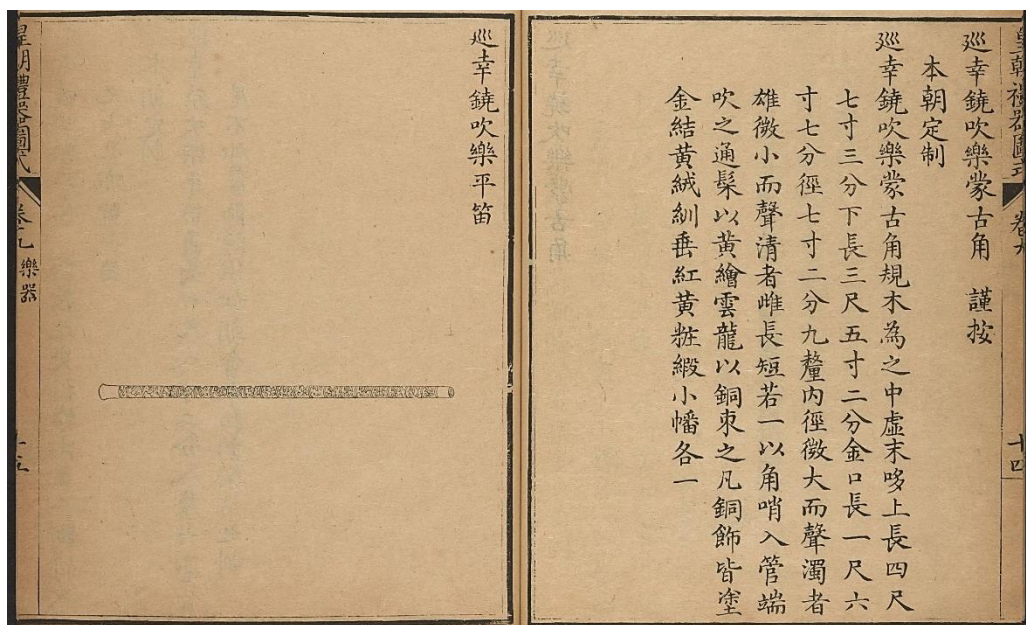 皇朝禮器圖式 卷九 十四
巡幸鐃吹樂蒙古角 謹按
本朝定制
巡幸鐃吹樂蒙古角規木為之中虛末哆上長四尺
七寸三分下長三尺五寸二分金口長一尺六
寸七分徑七寸二分九釐內徑微大而聲濁者
雄微小而聲清者雌長短若一以角哨入管端
吹之通髹以黃繪雲龍以銅束之凡銅飾皆塗
金結黃絨紃垂紅黃粧緞小幡各一
巡幸鐃吹樂平笛
皇朝禮器圖式 卷九 樂器 十五